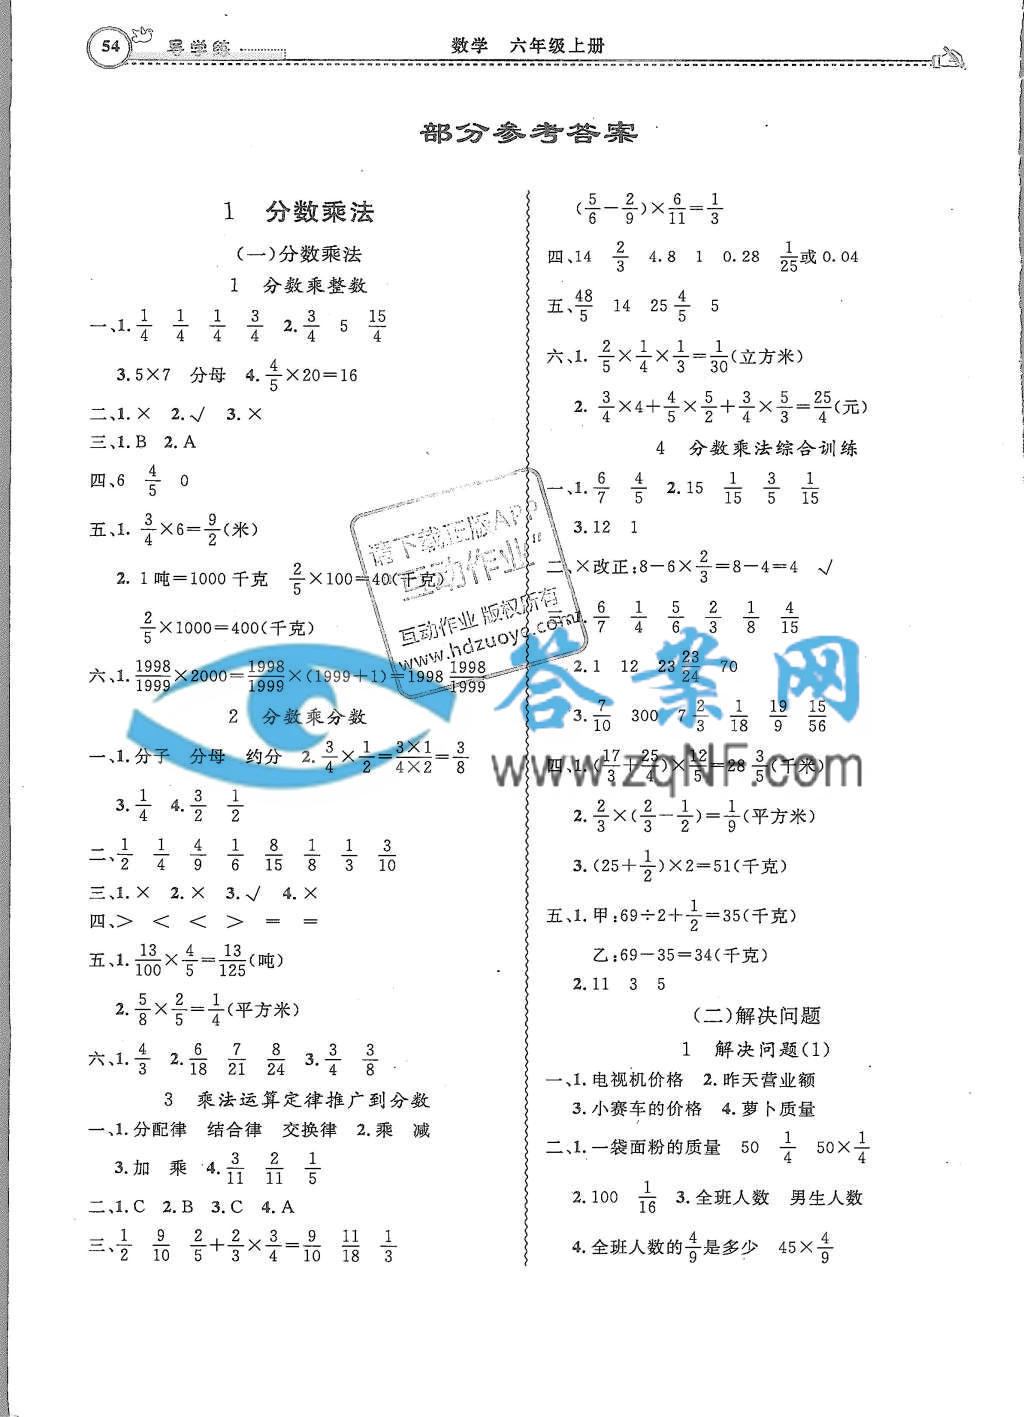 54 导学练
数学 六年级上册
部分参考答案
1 分数乘法
(一)分数乘法
1 分数乘整数
一、1. 1/4 1/4 1/4 3/4 2. 3/4 5 15/4
3. 5×7 分母 4. 4/5×20=16
二、1. × 2. √ 3. ×
三、1. B 2. A
四、6 4/5 0
五、1. 3/4×6=9/2(米)
2. 1吨=1000千克 2/5×100=40(千克)
2/5×1000=400(千克)
六、1. 1998/1999×2000=1998/1999×(1999+1)=1998 1998/1999
2 分数乘分数
一、1. 分子 分母 约分 2. 3/4×1/2=3×1/4×2=3/8
3. 1/4 4. 3/2 1/2
二、1/2 1/4 4/9 1/6 8/15 1/8 1/3 3/10
三、1. × 2. × 3. √ 4. ×
四、> < < > = =
五、1. 13/100×4/5=13/125(吨)
2. 5/8×2/5=1/4(平方米)
六、1. 4/3 2. 6/18 7/21 8/24 3. 3/4 3/8
3 乘法运算定律推广到分数
一、1. 分配律 结合律 交换律 2. 乘 减
3. 加 乘 4. 3/11 2/11 1/5
二、1. C 2. B 3. C 4. A
三、1/2 9/10 2/5+2/3×3/4=9/10 11/18 1/3
(5/6-2/9)×6/11=1/3
四、14 2/3 4.8 1 0.28 1/25或0.04
五、48/5 14 25 4/5 5
六、1. 2/5×1/4×1/3=1/30(立方米)
2. 3/4×4+4/5×5/2+3/4×5/3=25/4(元)
4 分数乘法综合训练
一、1. 6/7 4/5 2. 15 1/15 3/5 1/15
3. 12 1
二、×改正:8-6×2/3=8-4=4 √
三、1. 6/7 1/4 5/6 2/3 1/8 4/15
2. 1 12 23 23/24 70
3. 7/10 300 7 2/3 1/18 19/9 15/56
四、1. (17/3+25/4)×12/5=28 3/5(千米)
2. 2/3×(2/3-1/2)=1/9(平方米)
3. (25+1/2)×2=51(千克)
五、1. 甲:69÷2+1/2=35(千克)
乙:69-35=34(千克)
2. 11 3 5
(二)解决问题
1 解决问题(1)
一、1. 电视机价格 2. 昨天营业额
3. 小赛车的价格 4. 萝卜质量
二、1. 一袋面粉的质量 50 1/4 50×1/4
2. 100 1/16 3. 全班人数 男生人数
4. 全班人数的4/9是多少 45×4/9
请下载正版APP
"互动作业"
互动作业 版权所有
www.hdzuoye.com
答案网
www.zqNF.com